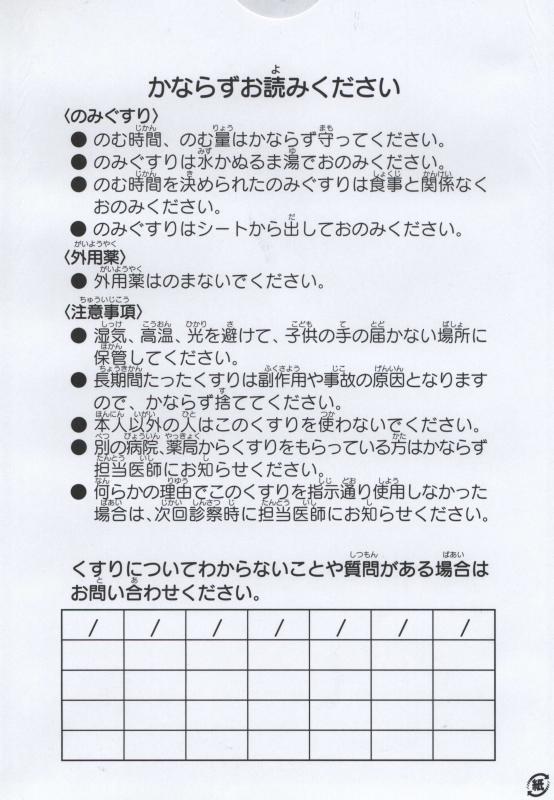 かならずお読みください
〈のみぐすり〉
● のむ時間、のむ量はかならず守ってください。
● のみぐすりは水かぬるま湯でおのみください。
● のむ時間を決められたのみぐすりは食事と関係なく
おのみください。
● のみぐすりはシートから出しておのみください。
〈外用薬〉
● 外用薬はのまないでください。
〈注意事項〉
● 湿気、高温、光を避けて、子供の手の届かない場所に
保管してください。
● 長期間たったくすりは副作用や事故の原因となります
ので、かならず捨ててください。
● 本人以外の人はこのくすりを使わないでください。
● 別の病院、薬局からくすりをもらっている方はかならず
担当医師にお知らせください。
● 何らかの理由でこのくすりを指示通り使用しなかった
場合は、次回診察時に担当医師にお知らせください。
くすりについてわからないことや質問がある場合は
お問い合わせください。
/ / / / / / /
紙